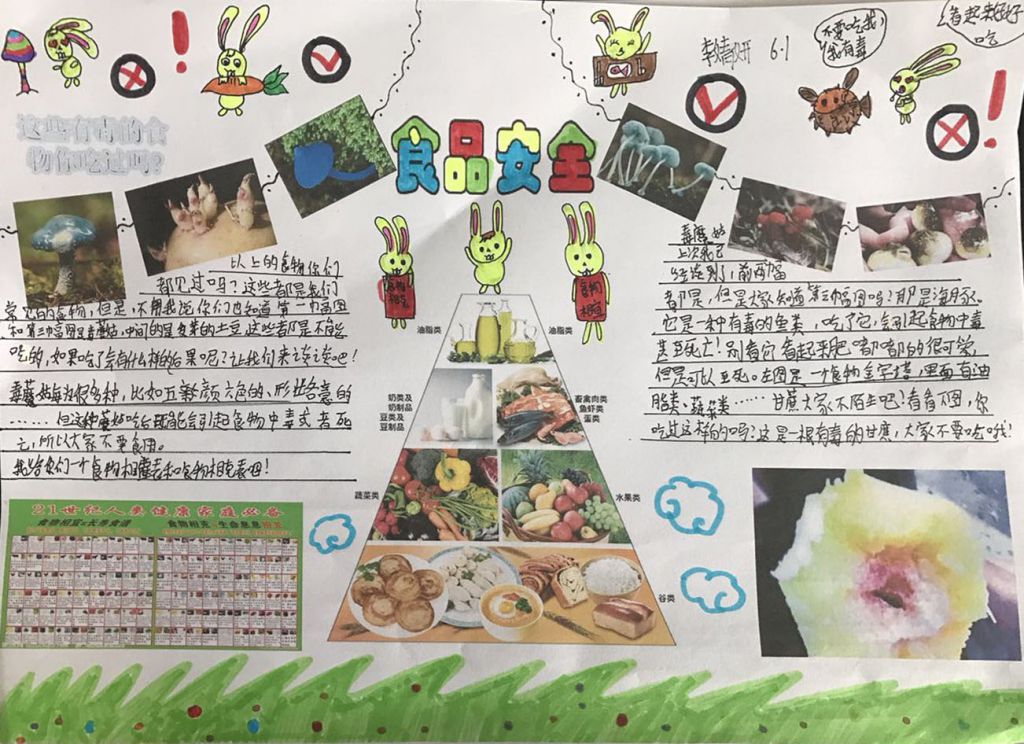 看起来好好
吃
不要吃我!
我有毒
李婧妍 6.1
这些有毒的食
物你吃过吗?
食品安全
食物
相克
食物
相宜
以上的食物你们
都见过吗?这些都是我们
常见的食物,但是,不用我说你们也知道第一幅图
和第三幅图是毒蘑菇,中间的是发芽的土豆,这些都是不能
吃的,如果吃了会有什么样的后果呢?让我们来谈谈吧!
毒蘑菇有很多种,比如五颜六色的,形状各意的
……但这种蘑菇吃后可能会引起食物中毒式者死
亡,所以大家不要食用。
我给你们一个食物相克和食物相宜表吧!
毒蘑菇
上次我已
经说到了,前两幅
都是,但是大家知道第三幅图吗?那是海豚。
它是一种有毒的鱼类,吃了它,会引起食物中毒
甚至死亡!别看它看起来肥嘟嘟的很可爱,
但是可以至死。左图是一个食物金字塔,里面有油
脂类、蔬菜类……甘蔗大家不陌生吧?看看下图,你
吃过这样的吗?这是一根有毒的甘蔗,大家不要吃哦!
油脂类
油脂类
奶类及
奶制品
豆类及
豆制品
畜禽肉类
鱼虾类
蛋类
蔬菜类
水果类
谷类
21世纪人类健康家庭必备
食物相宜=长寿食谱
食物相克=生命息息相关